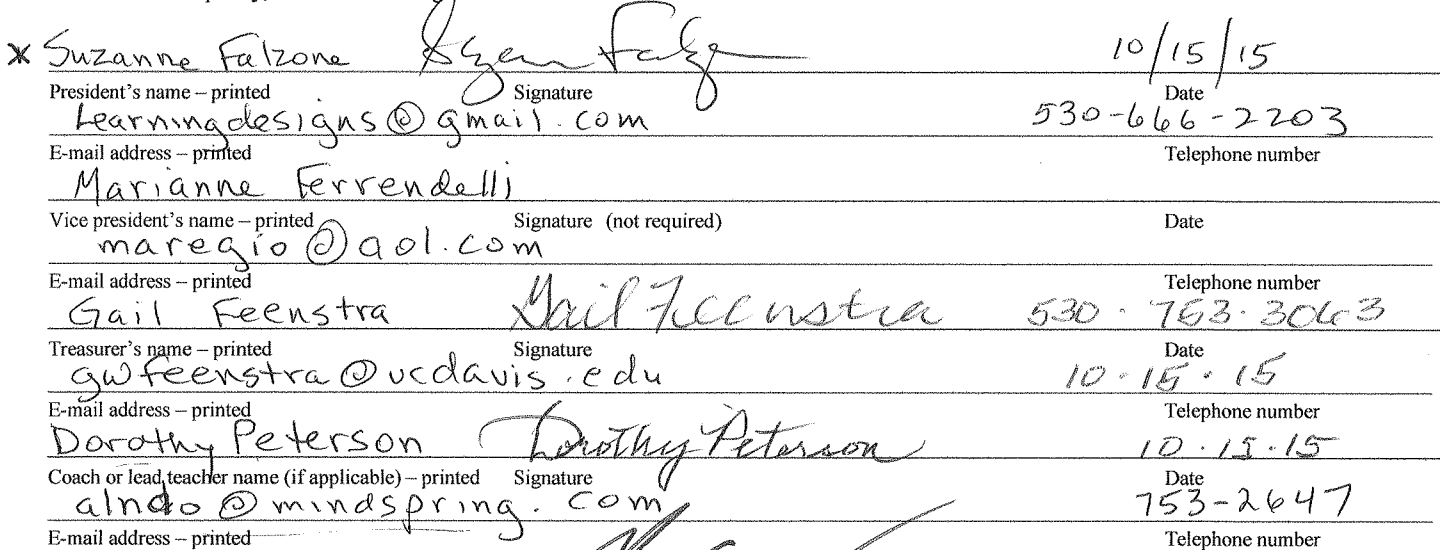 x Suzanne Falzone Suzanne Falzone 10/15/15
President's name – printed Signature Date
Learningdesigns@gmail.com 530-666-2203
E-mail address – printed Telephone number
Marianne Ferrendelli
Vice president's name – printed Signature (not required) Date
maregio@aol.com
E-mail address – printed Telephone number
Gail Feenstra Gail Feenstra 530·753·3063
Treasurer's name – printed Signature Date
gwfeenstra@ucdavis.edu 10·15·15
E-mail address – printed Telephone number
Dorothy Peterson Dorothy Peterson 10·15·15
Coach or lead teacher name (if applicable) – printed Signature Date
alndo@mindspring.com 753-2647
E-mail address – printed Telephone number